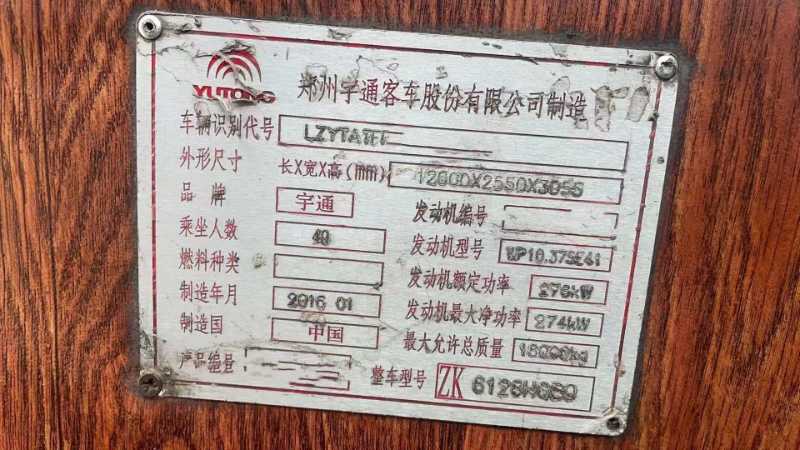 YUTONG
郑州宇通客车股份有限公司制造
车辆识别代号 LZYTATEF
外形尺寸 长X宽X高(mm) 12000X2550X3055
品牌 宇通 发动机编号
乘坐人数 40 发动机型号 WP10.375E41
燃料种类 发动机额定功率 276kW
制造年月 2016 01 发动机最大净功率 274kW
制造国 中国 最大允许总质量 18000kg
产品编号 整车型号 ZK